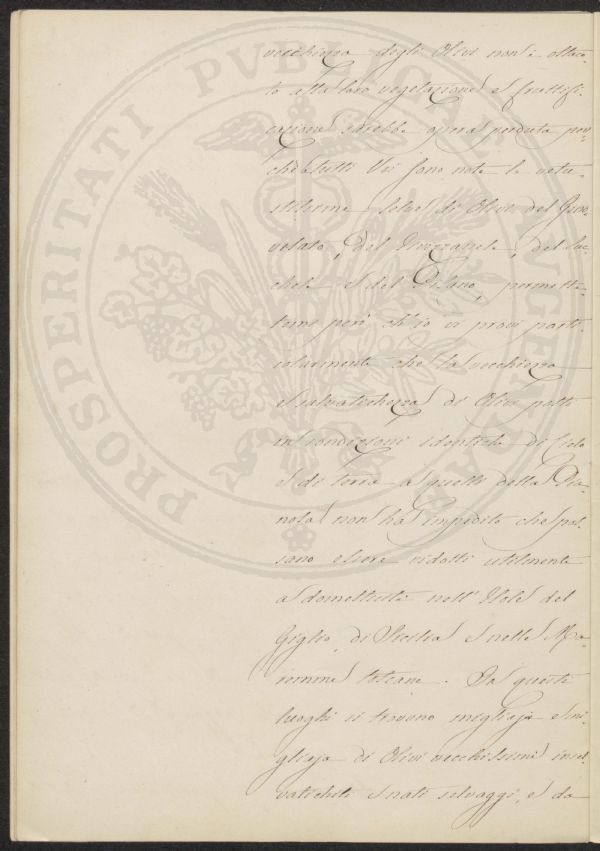 vecchiezza degli Olivi non è ostaco-
lo alla loro vegetazione e fruttifi-
cazione sarebbe opera perduta per-
chè a tutti Voi sono note le vetu-
stissime selve di Olivi del
del
e del permette-
temi però ch'io vi provi parti-
colarmente che la vecchiezza
e salvatichezza di Olivi posti
in condizioni identiche di Cielo
e di terra a quelli della Pia-
nosa non ha impedito che pos-
sano essere ridotti utilmente
a domestici nell'Isole del
Giglio, di Sicilia e nelle Ma-
remme toscane. In questi
luoghi si trovano migliaja e mi-
gliaja di Olivi vecchissimi insel-
vatichiti e nati selvaggi, e da
PROSPERITATI PUBLICAE AUGENDAE